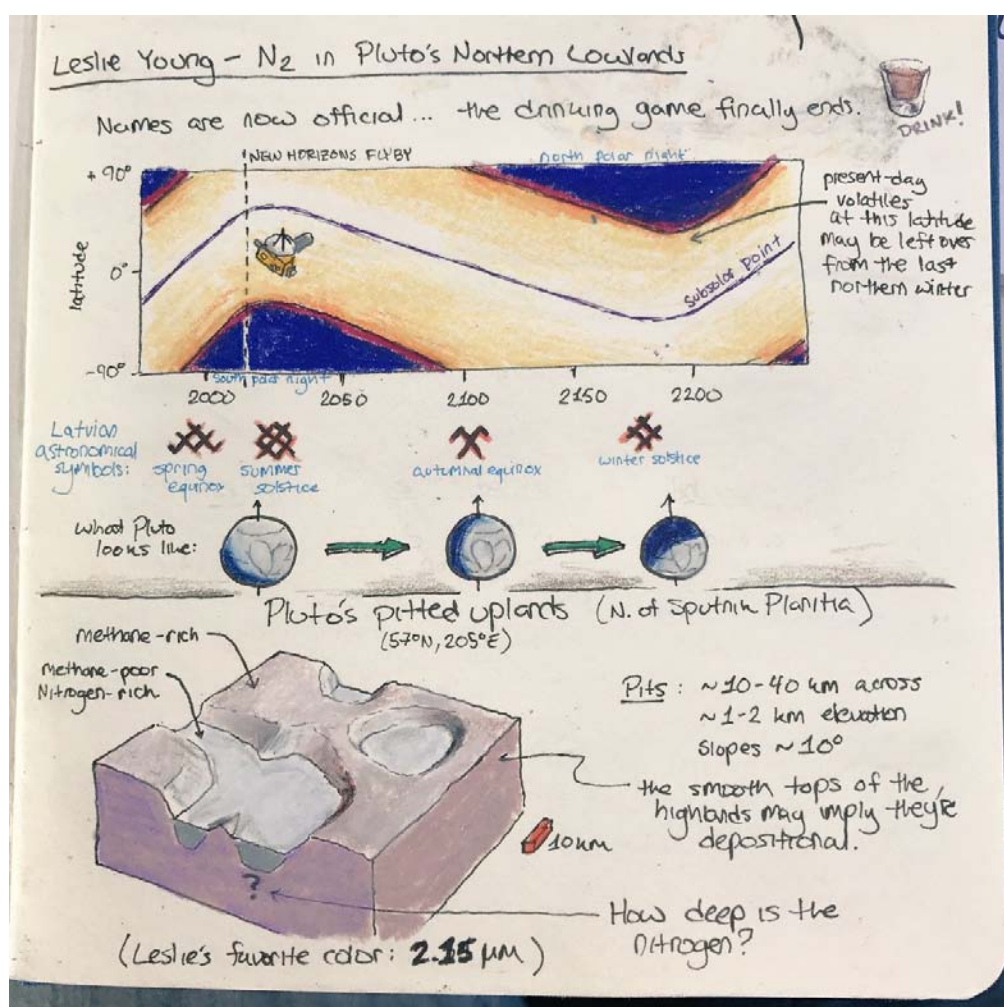 Leslie Young - N2 in Pluto's Northern Lowlands
Names are now official... the drinking game finally ends.
DRINK!
NEW HORIZONS FLYBY
north polar night
+90°
0°
-90°
latitude
subsolar point
south polar night
2000 2050 2100 2150 2200
present-day
volatiles
at this latitude
may be left over
from the last
northern winter
Latvian
astronomical
symbols:
spring
equinox
summer
solstice
autumnal equinox
winter solstice
what Pluto
looks like:
Pluto's pitted uplands (N. of Sputnik Planitia)
(57°N, 205°E)
methane-rich
methane-poor
Nitrogen-rich
Pits: ~10-40 km across
~1-2 km elevation
Slopes ~10°
the smooth tops of the
highlands may imply they're
depositional.
10km
?
How deep is the
nitrogen?
(Leslie's favorite color: 2.15 μm)